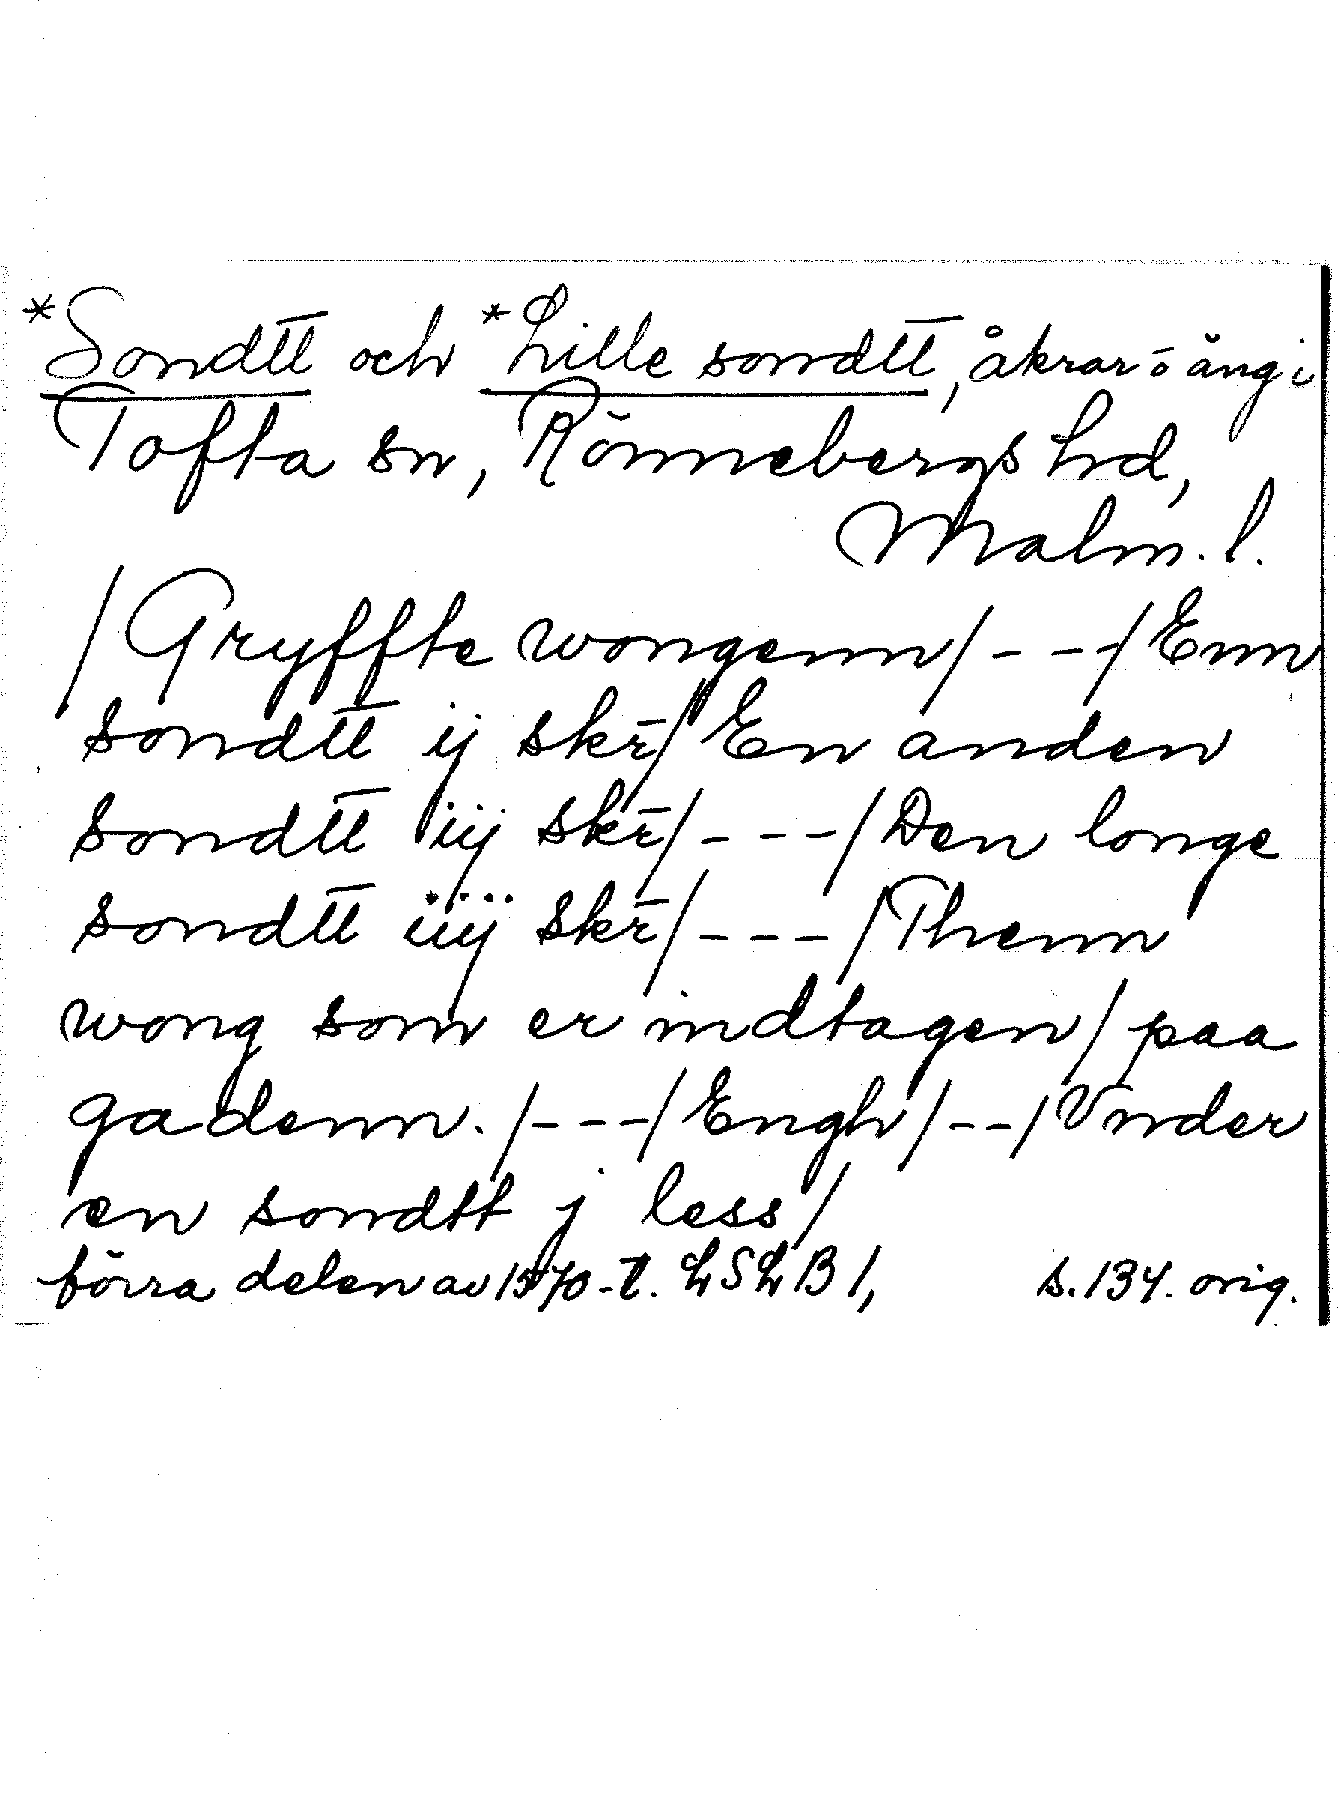 *Sondtt och *Lille sondtt, åkrar o äng i
Tofta sn, Rönnebergs hd,
Malm. l.
/Gryffte wongenn/---/Enn
sondtt ij skr̄/En anden
sondtt iij skr̄/---/Den longe
sondtt iiij skr̄/---/Thenn
wong som er indtagen/paa
gadenn./---/Engh/--/Vnder
en sondtt j less/
förra delen av 1570-t. LSLB 1, s. 134. orig.